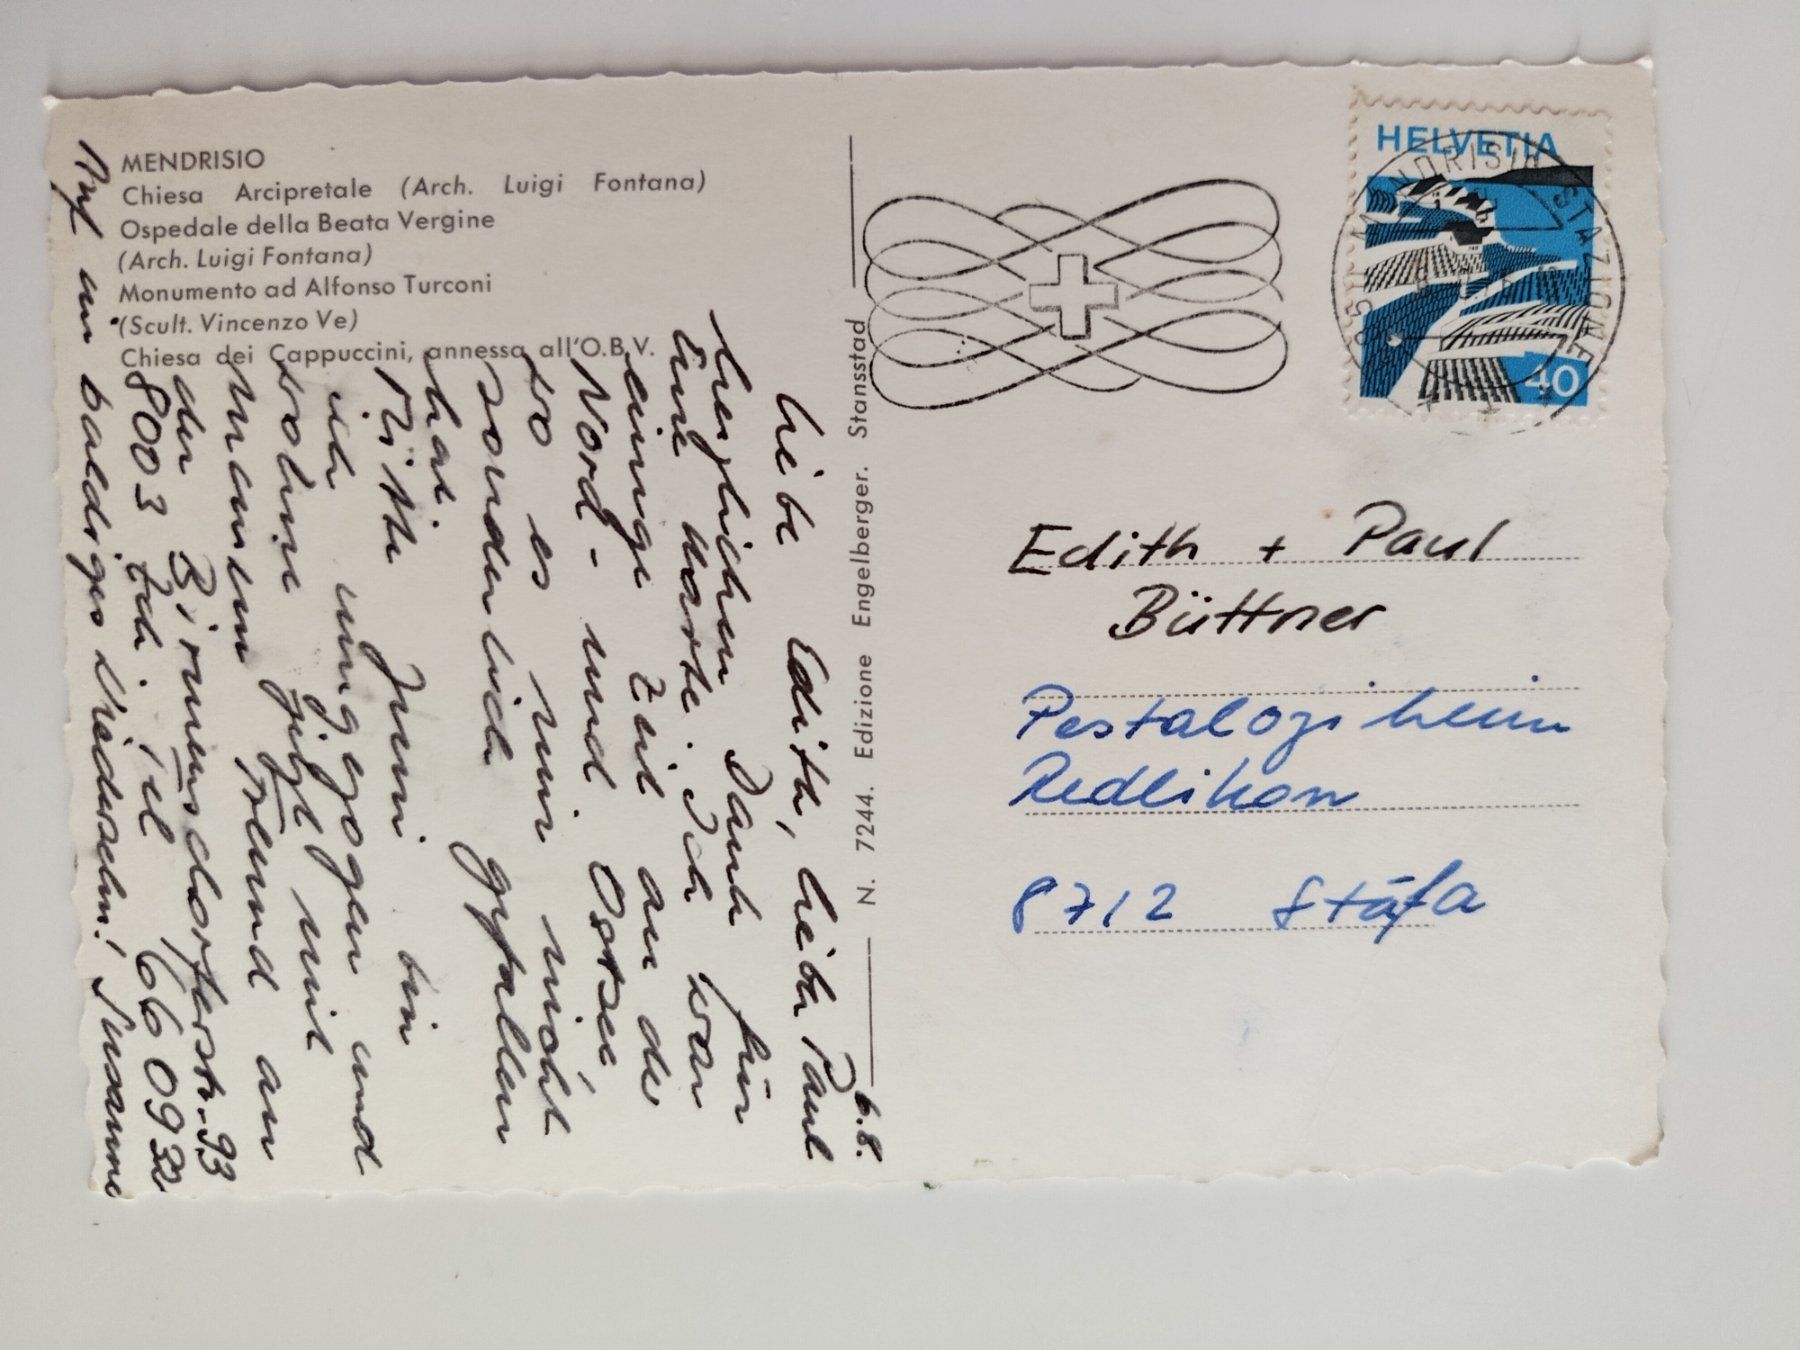 MENDRISIO
Chiesa Arcipretale (Arch. Luigi Fontana)
Ospedale della Beata Vergine
(Arch. Luigi Fontana)
Monumento ad Alfonso Turconi
(Scult. Vincenzo Ve)
Chiesa dei Cappuccini, annessa all'O.B.V.
6.8.
Liebe Edith, lieber Paul
herzlichen Dank für
Eure Karte. Ich war
einige Zeit an der
Nord- und Ostsee,
wo es mir nicht
sonderlich gefallen
hat.
Mitte Juni bin
ich umgezogen und
wohne jetzt mit
meinem Freund an
der Birmensdorferstr. 93
8003 Zch Tel 66 09 32
Auf ein baldiges Wiedersehn! Susanne
N. 7244. Edizione Engelberger. Stansstad
HELVETIA
40
MENDRISIO STAZIONE
Edith + Paul
Büttner
Pestalozziheim
Redlikon
8712 Stäfa